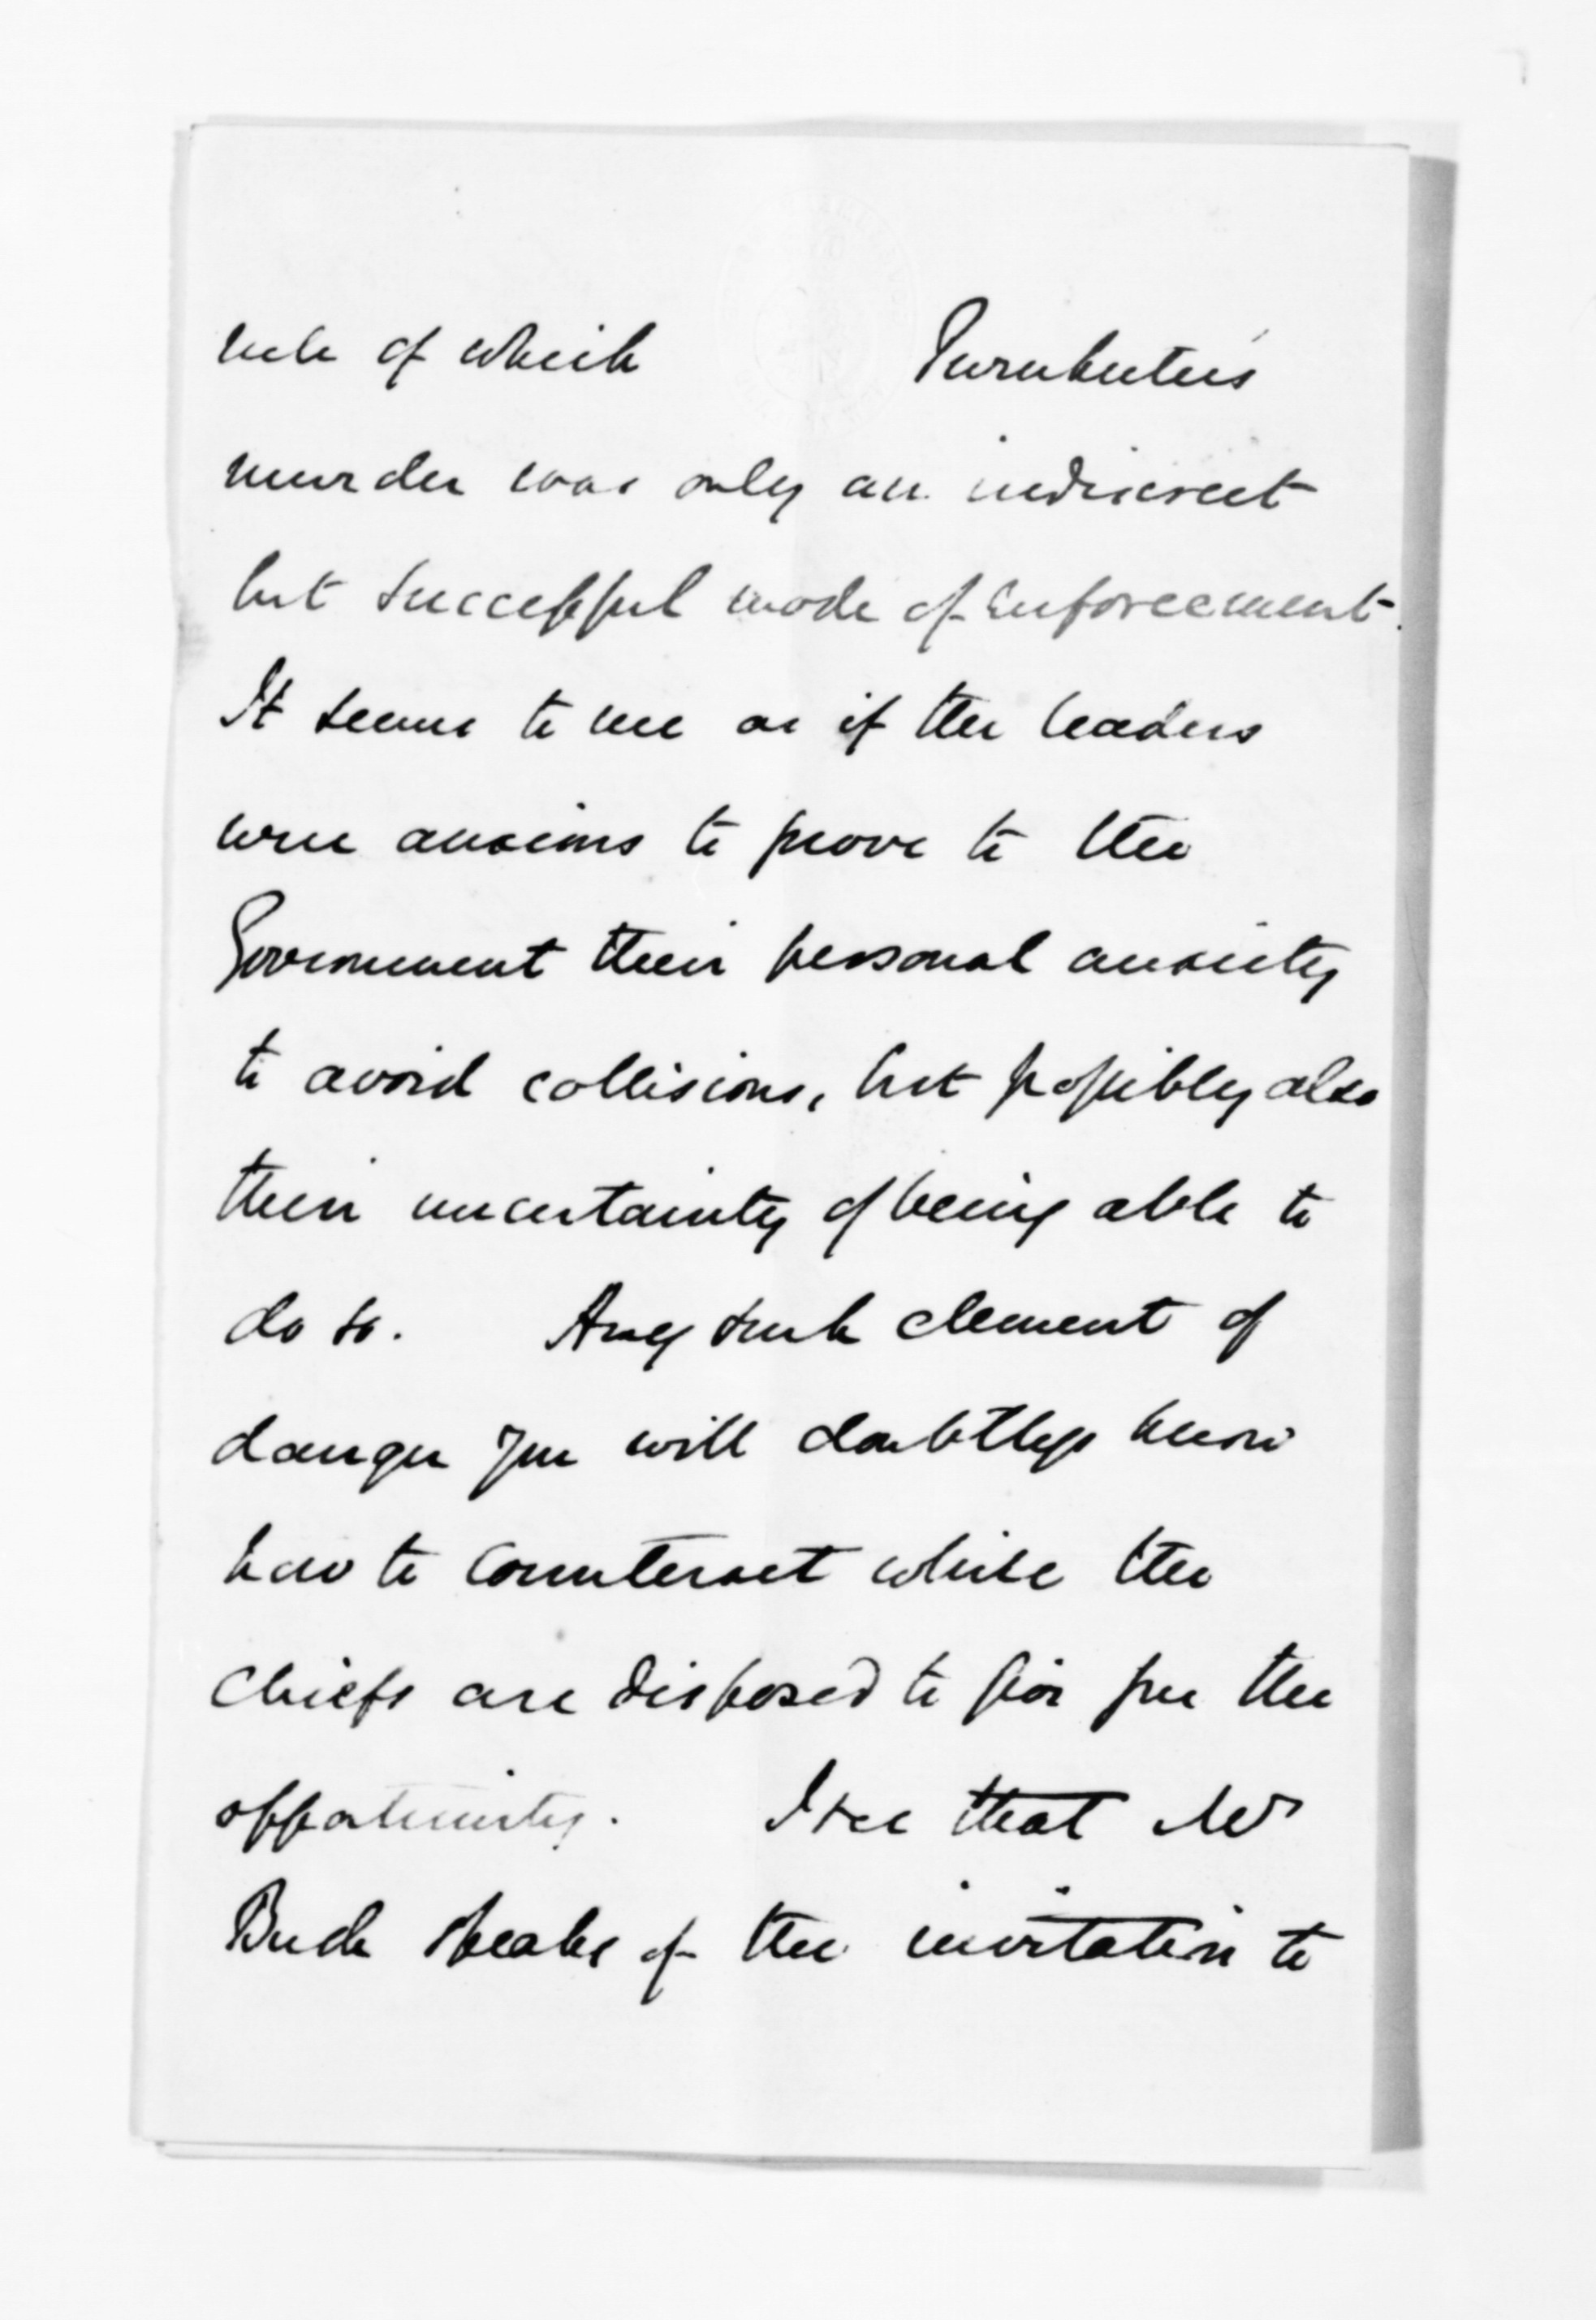 rule of which Purukutu's
murder was only an indiscreet
but successful mode of enforcement.
It seems to me as if the leaders
were anxious to prove to the
Government their personal anxiety
to avoid collisions, but possibly also
their uncertainty of being able to
do so. Any such element of
danger you will doubtless know
how to counteract while the
Chiefs are disposed to give you the
opportunity. I see that Mr
Bush speaks of the invitation to